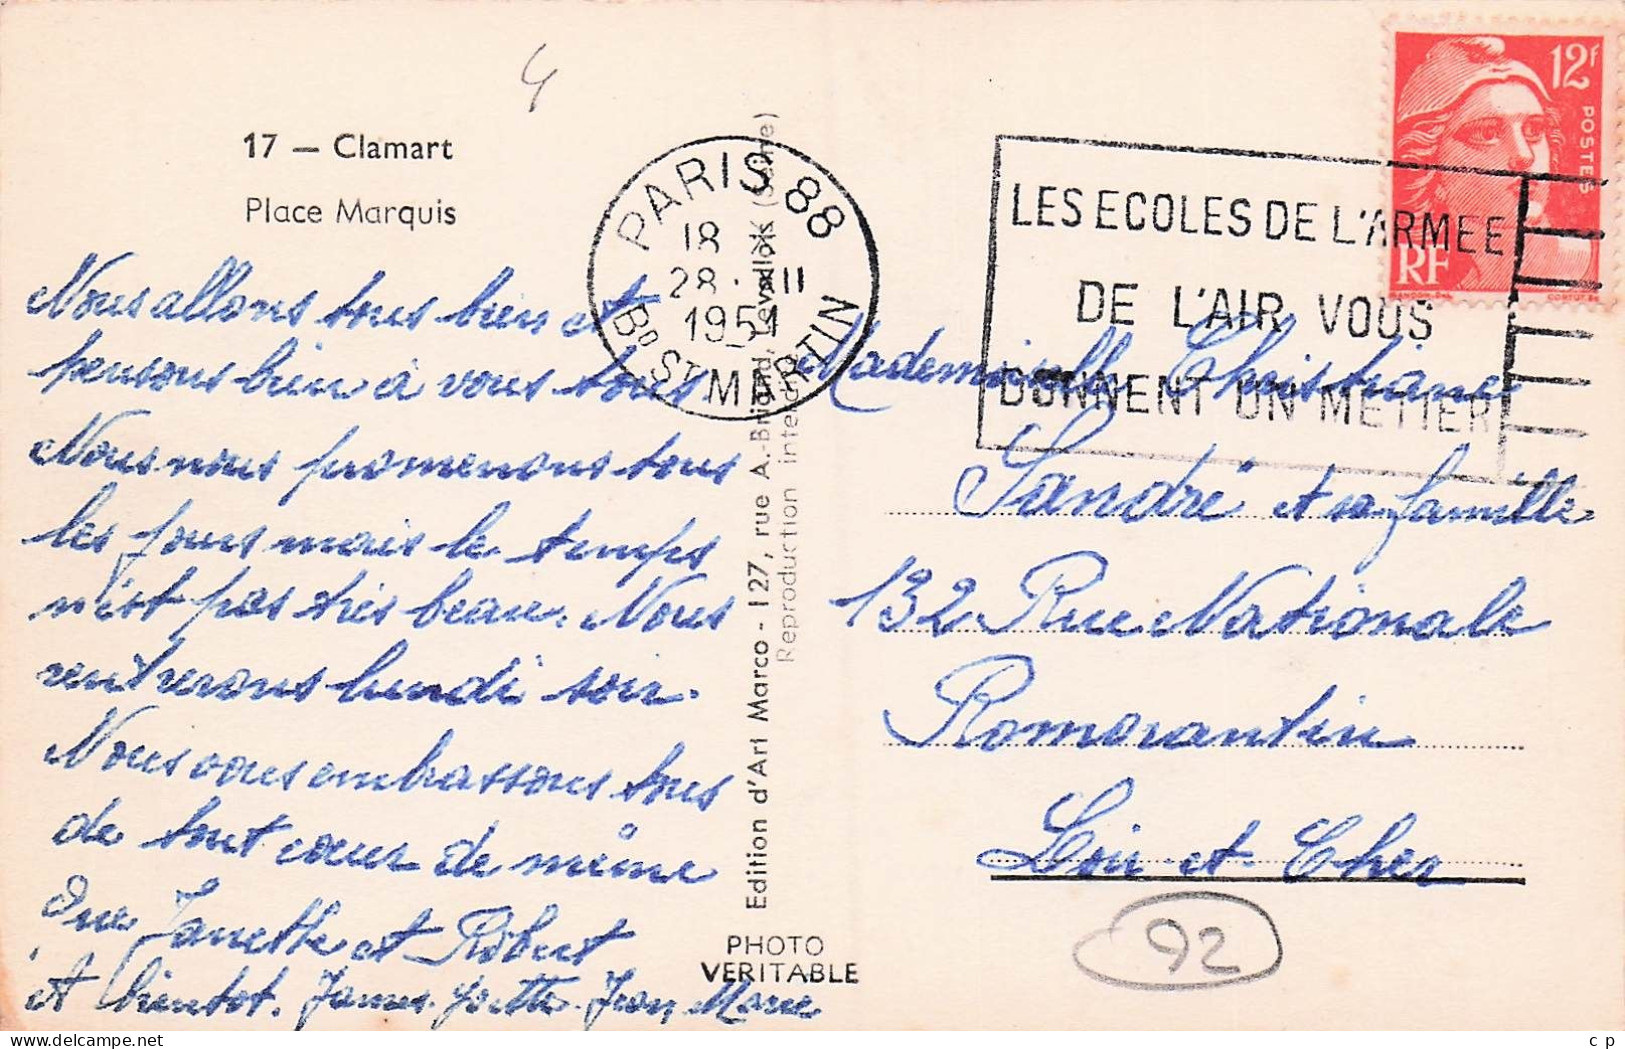 4
17 — Clamart
Place Marquis
Nous allons tous bien et
pensons bien à vous tous
Nous nous promenons tous
les jours mais le temps
n'est pas très beau. Nous
rentrerons lundi soir.
Nous vous embrassons tous
de tout cœur de même
que Janette et Robert
A bientôt. James. Yvette. Jean Marie
Edition d'Art Marco - 127, rue A.-Briand, Levallois (Seine)
Reproduction interdite
PHOTO
VERITABLE
PARIS 88
18
28 . XII
1951
Bd ST MARTIN
LES ECOLES DE L'ARMEE
DE L'AIR VOUS
DONNENT UN METIER
12f
POSTES
RF
Mademoiselle Christiane
Sandré et sa famille
132 Rue Nationale
Romorantin
Loir-et-Cher
92
c p